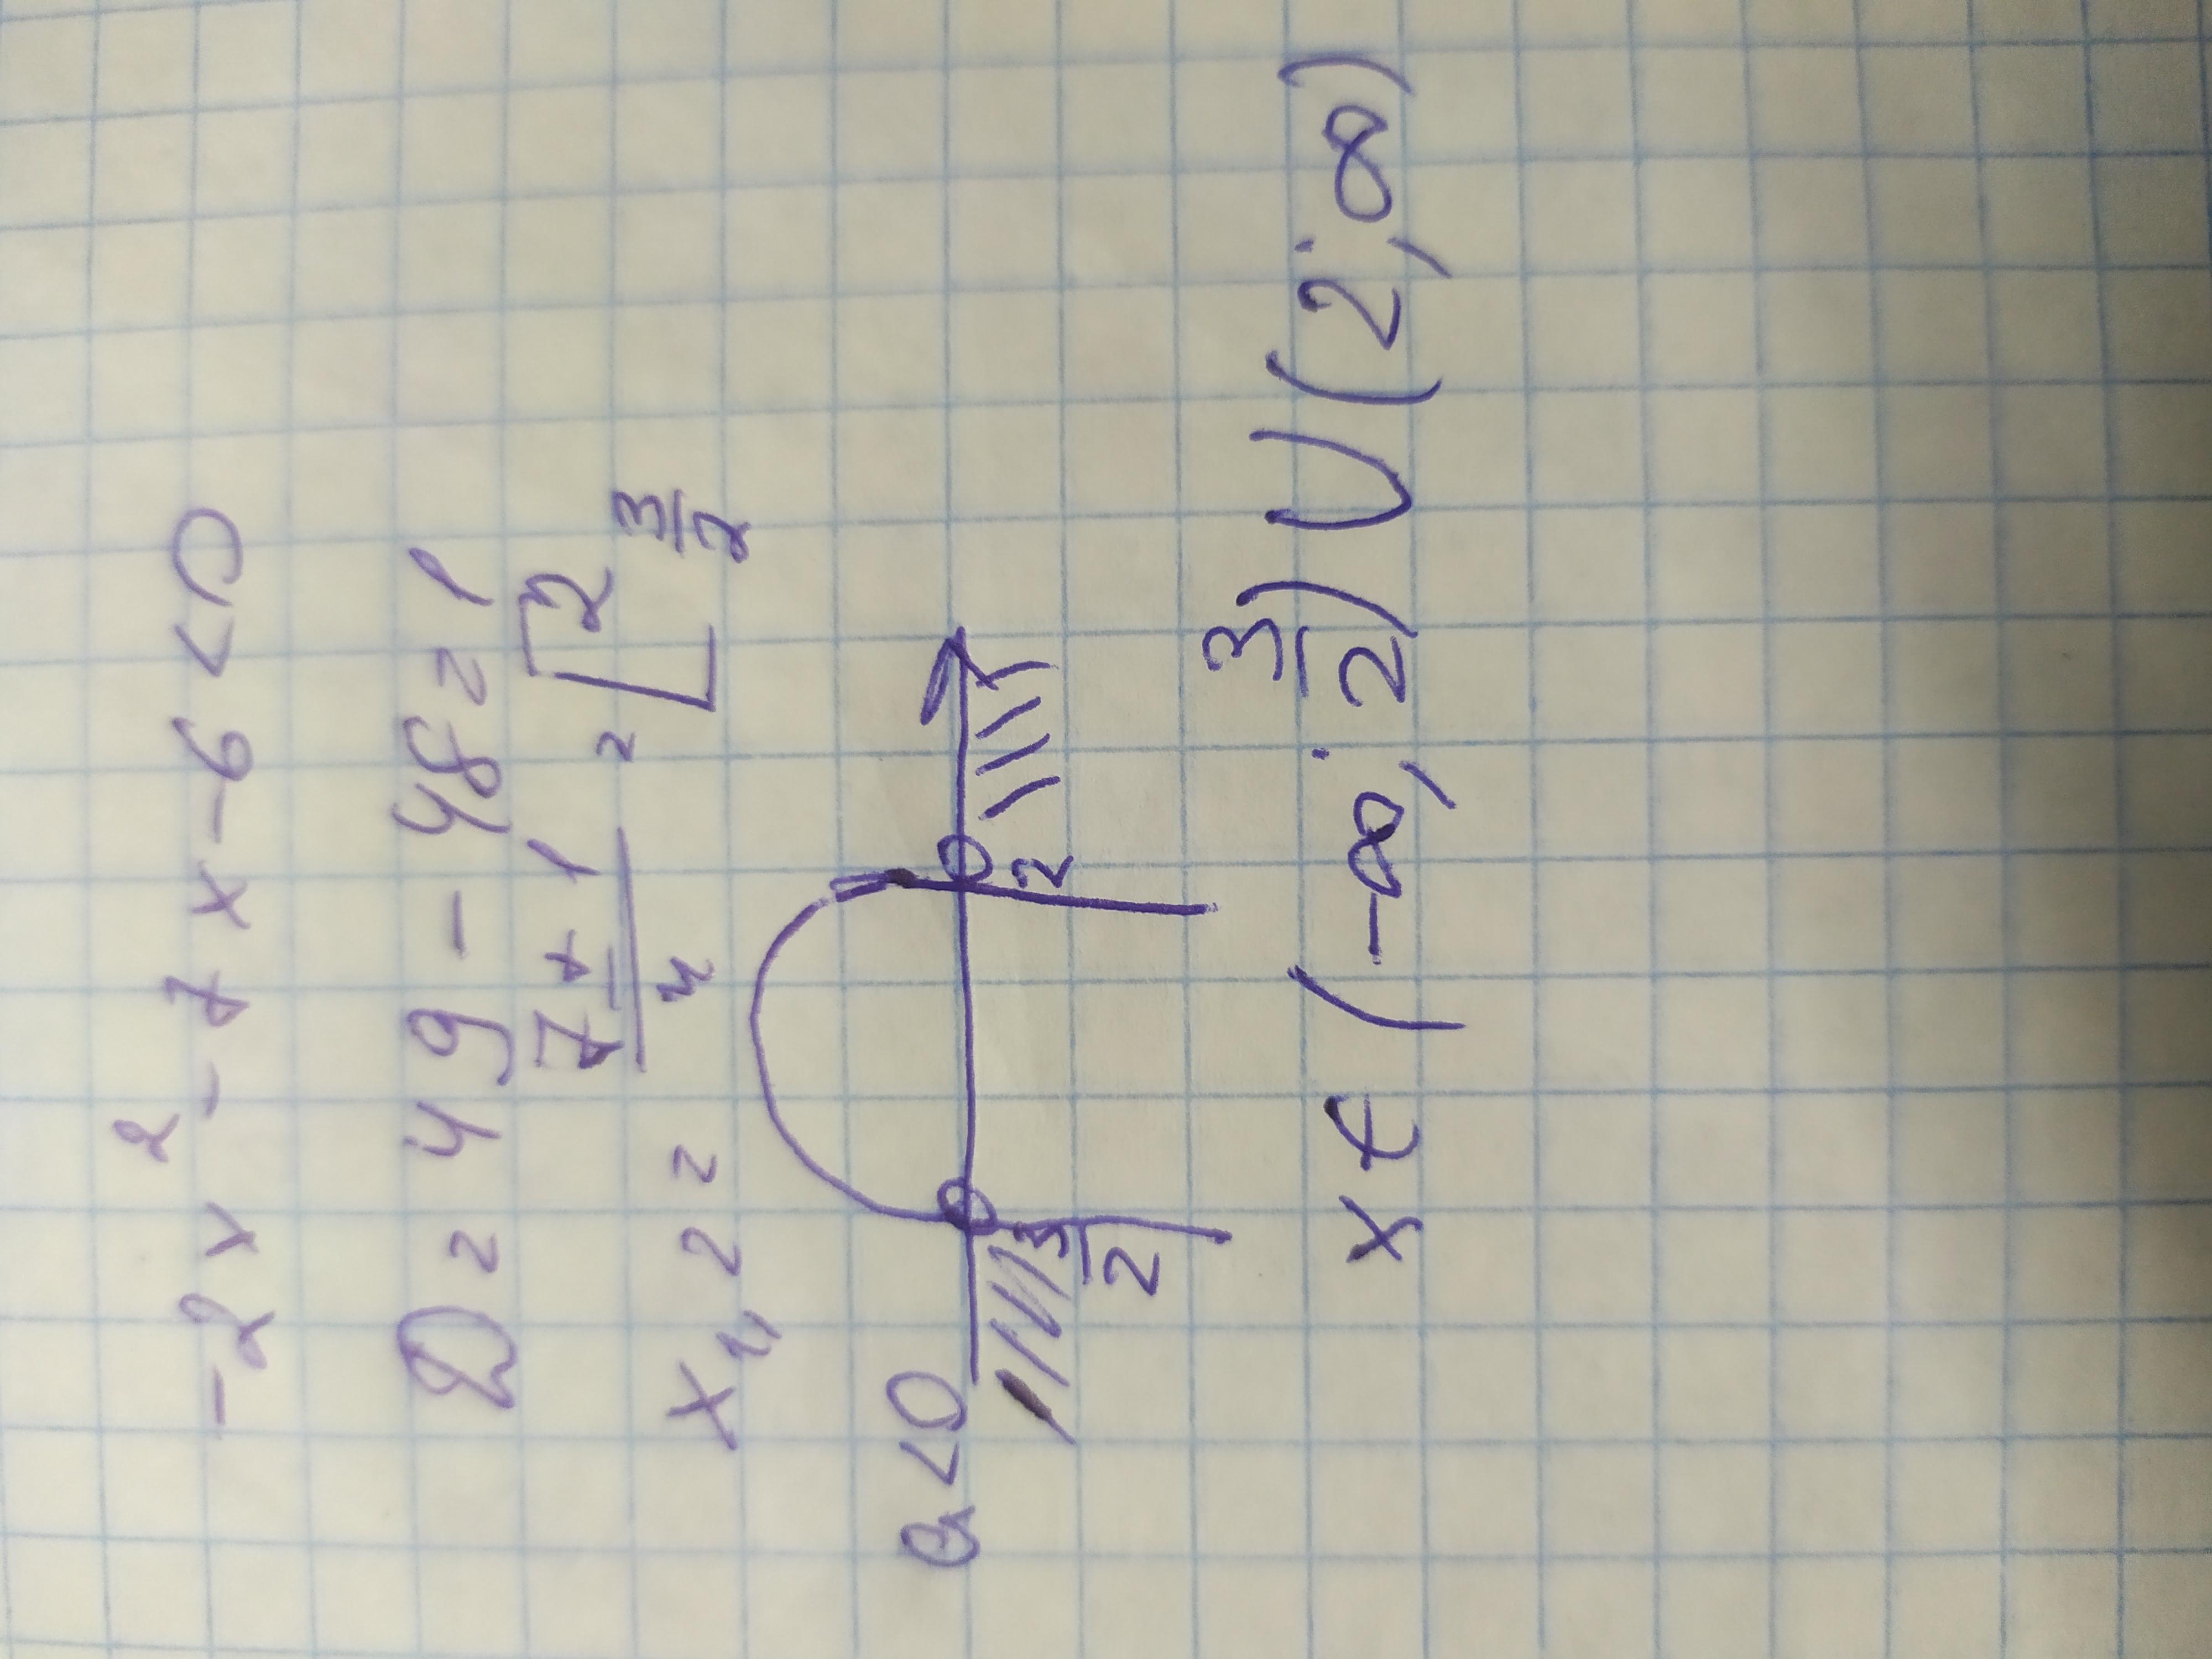 -2x² - 7x - 6 < 0
D = 49 - 48 = 1
x₁,₂ = (7 ± 1)/4 = [2 3/2
a < 0
3/2 2
x ∈ (-∞; 3/2) ∪ (2; ∞)